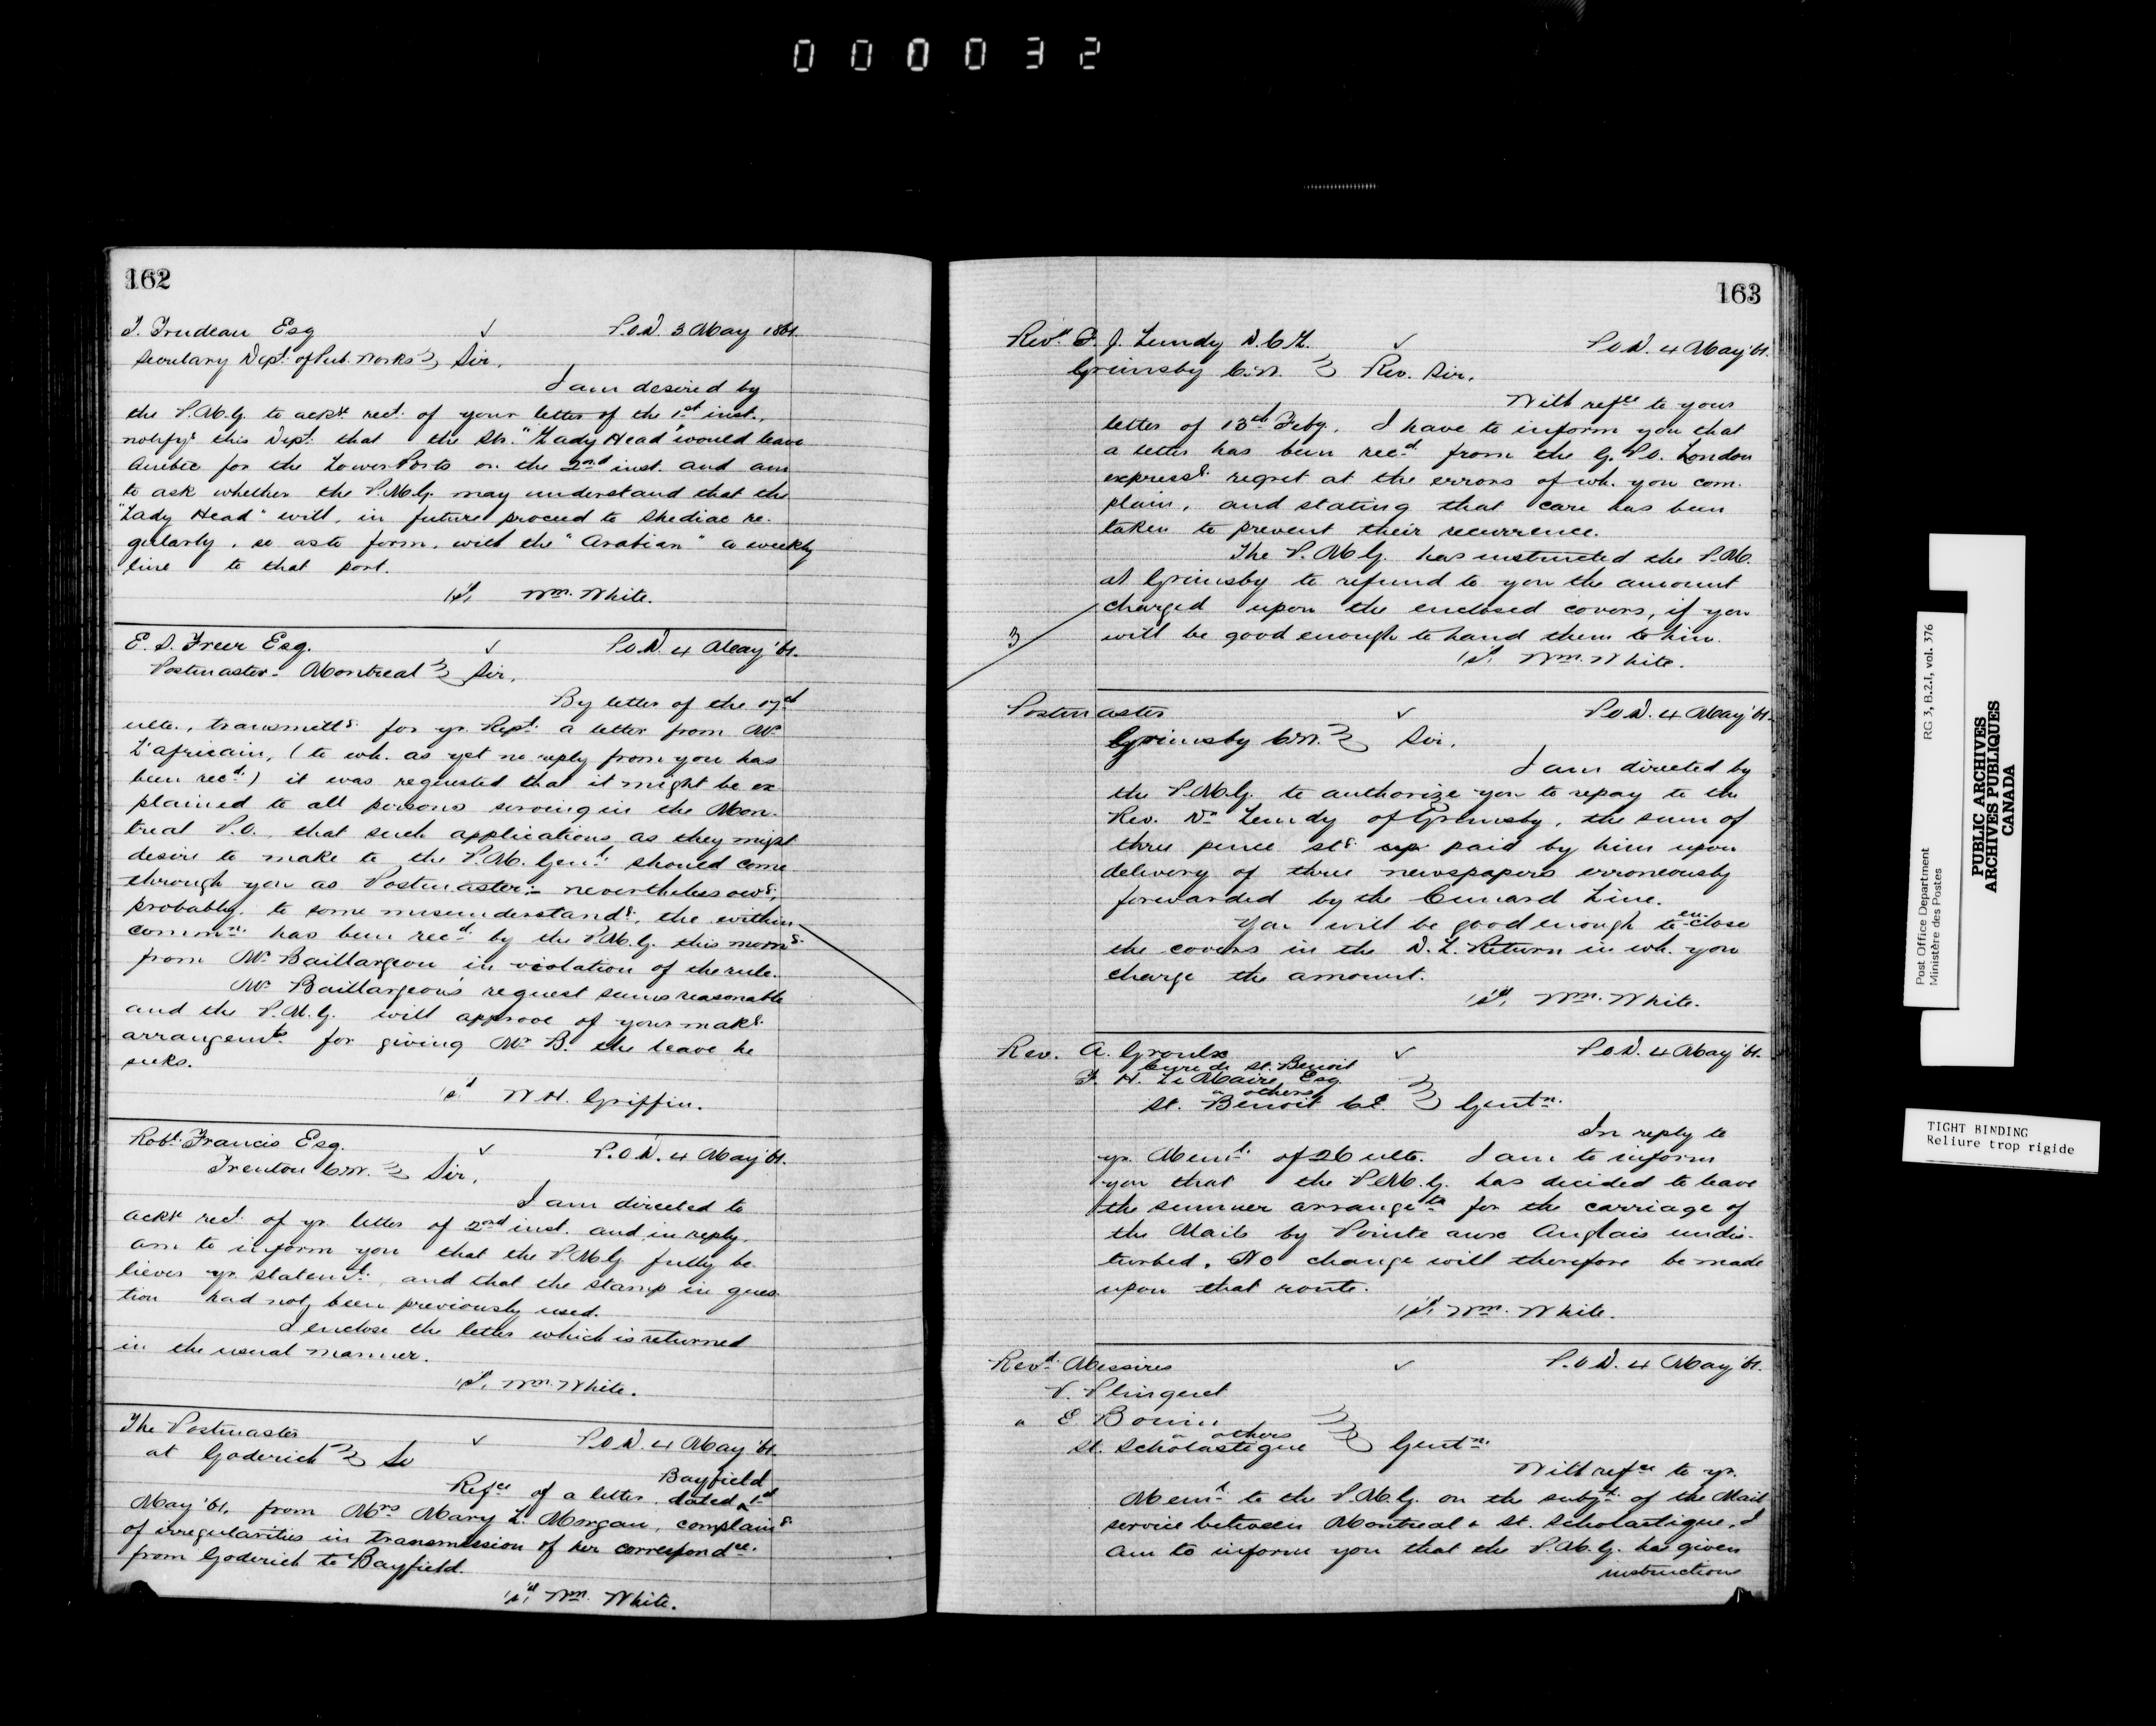 000032
162
T. Trudeau Esq ✓ P.O.D. 3 May 1861.
Secretary Dept. of Pub. Works } Sir,
I am desired by
the P.M.G. to ackg rect. of your letter of the 1st inst.
notifyg this Dept. that the Str. "Lady Head" would leave
Quebec for the Lower Ports on the 2nd inst. and am
to ask whether the P.M.G. may understand that the
"Lady Head" will, in future proceed to Shediac re-
gularly, so as to form, with the "Arabian" a weekly
line to that port.
/sd/ Wm. White.
E. S. Freer Esq. ✓ P.O.D. 4 May '61.
Postmaster- Montreal } Sir,
By letter of the 17th
ulto., transmittg for yr. Rept. a letter from Mr
L'africain, (to wh. as yet no reply from you has
been recd.) it was requested that it might be ex-
plained to all persons serving in the Mon-
treal P.O. that such applications as they might
desire to make to the P.M. Genl. should come
through you as Postmaster;- nevertheless owg,
probably, to some misunderstandg, the within
commn. has been recd. by the P.M.G. this morng
from Mr Baillargeon in violation of the rule.
Mr Baillargeon's request seems reasonable
and the P.M.G. will approve of your makg
arrangemts. for giving Mr B. the leave he
seeks.
/sd W.H. Griffin.
Robt. Francis Esq. ✓ P.O.D. 4 May '61.
Trenton C.W. } Sir,
I am directed to
ackg rect. of yr. letter of 2nd inst. and in reply
am to inform you that the P.M.G. fully be-
lieves yr. statemt. and that the stamp in ques-
tion had not been previously used.
I enclose the letter which is returned
in the usual manner.
/sd/ Wm. White.
The Postmaster ✓ P.O.D. 4 May '61.
at Goderich } Sir
Bayfield
Refce of a letter dated 1st
May '61, from Mrs Mary L. Morgan, complaing
of irregularities in transmission of her correspondce.
from Goderich to Bayfield.
/sd/ Wm. White.
163
Revd. F. J. Lundy D.C.L. ✓ P.O.D. 4 May '61.
Grimsby C.W. } Rev. Sir,
With refce to your
letter of 13th Feby. I have to inform you that
a letter has been recd. from the G.P.O. London
expressg. regret at the errors of wh. you com-
plain, and stating that care has been
taken to prevent their recurrence.
The P.M.G. has instructed the P.M.
at Grimsby to refund to you the amount
charged upon the enclosed covers, if you
3 will be good enough to hand them to him.
/sd/ Wm. White.
Postmaster ✓ P.O.D. 4 May '61.
Grimsby C.W. } Sir,
I am directed by
the P.M.G. to authorize you to repay to the
Rev. Dr Lundy of Grimsby, the sum of
three pence stg paid by him upon
delivery of three newspapers erroneously
forwarded by the Cunard Line.
You will be good enough to en-close
the covers in the D.L. Return in wh. you
charge the amount.
/sd/ Wm. White.
Rev. A. Groulx ✓ P.O.D. 4 May '61.
Cure de St. Benoit
F. H. Le Maire, Esq.
& others
St. Benoit C.E. } Gentn.
In reply to
yr. Memt. of 26 ulto. I am to inform
you that the P.M.G. has decided to leave
the summer arrangets for the carriage of
the Mails by Pointe aux Anglais undis-
turbed. No change will therefore be made
upon that route.
/sd/ Wm. White.
Revd. Messires ✓ P.O.D. 4 May '61.
V. Plinguet
" E. Bonin
& others
St. Scholastique } Gentn.
With refce to yr.
Memt. to the P.M.G. on the subjt. of the Mail
service between Montreal & St. Scholastique, I
am to inform you that the P.M.G. has given
instructions
Post Office Department RG 3, B.2.I, vol. 376
Ministère des Postes
PUBLIC ARCHIVES
ARCHIVES PUBLIQUES
CANADA
TIGHT BINDING
Reliure trop rigide